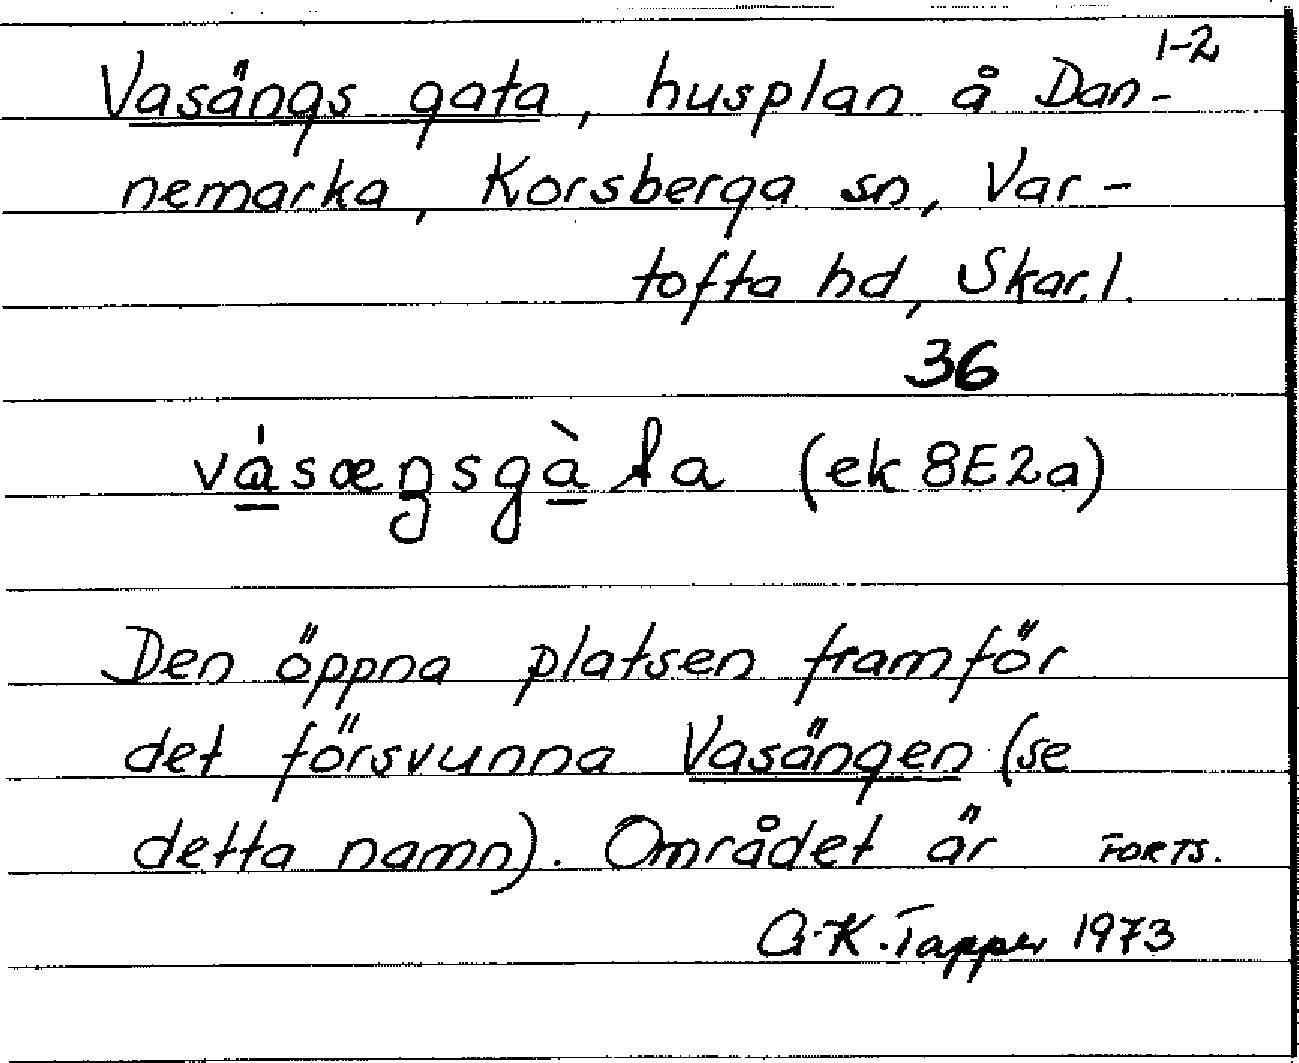 1-2
Vasängs gata, husplan å Dan-
nemarka, Korsberga sn, Var-
tofta hd, Skar.l.
36
(ek 8E2a)
Den öppna platsen framför
det försvunna Vasängen (se
detta namn). Området är FORTS.
G-K. Tapper 1973